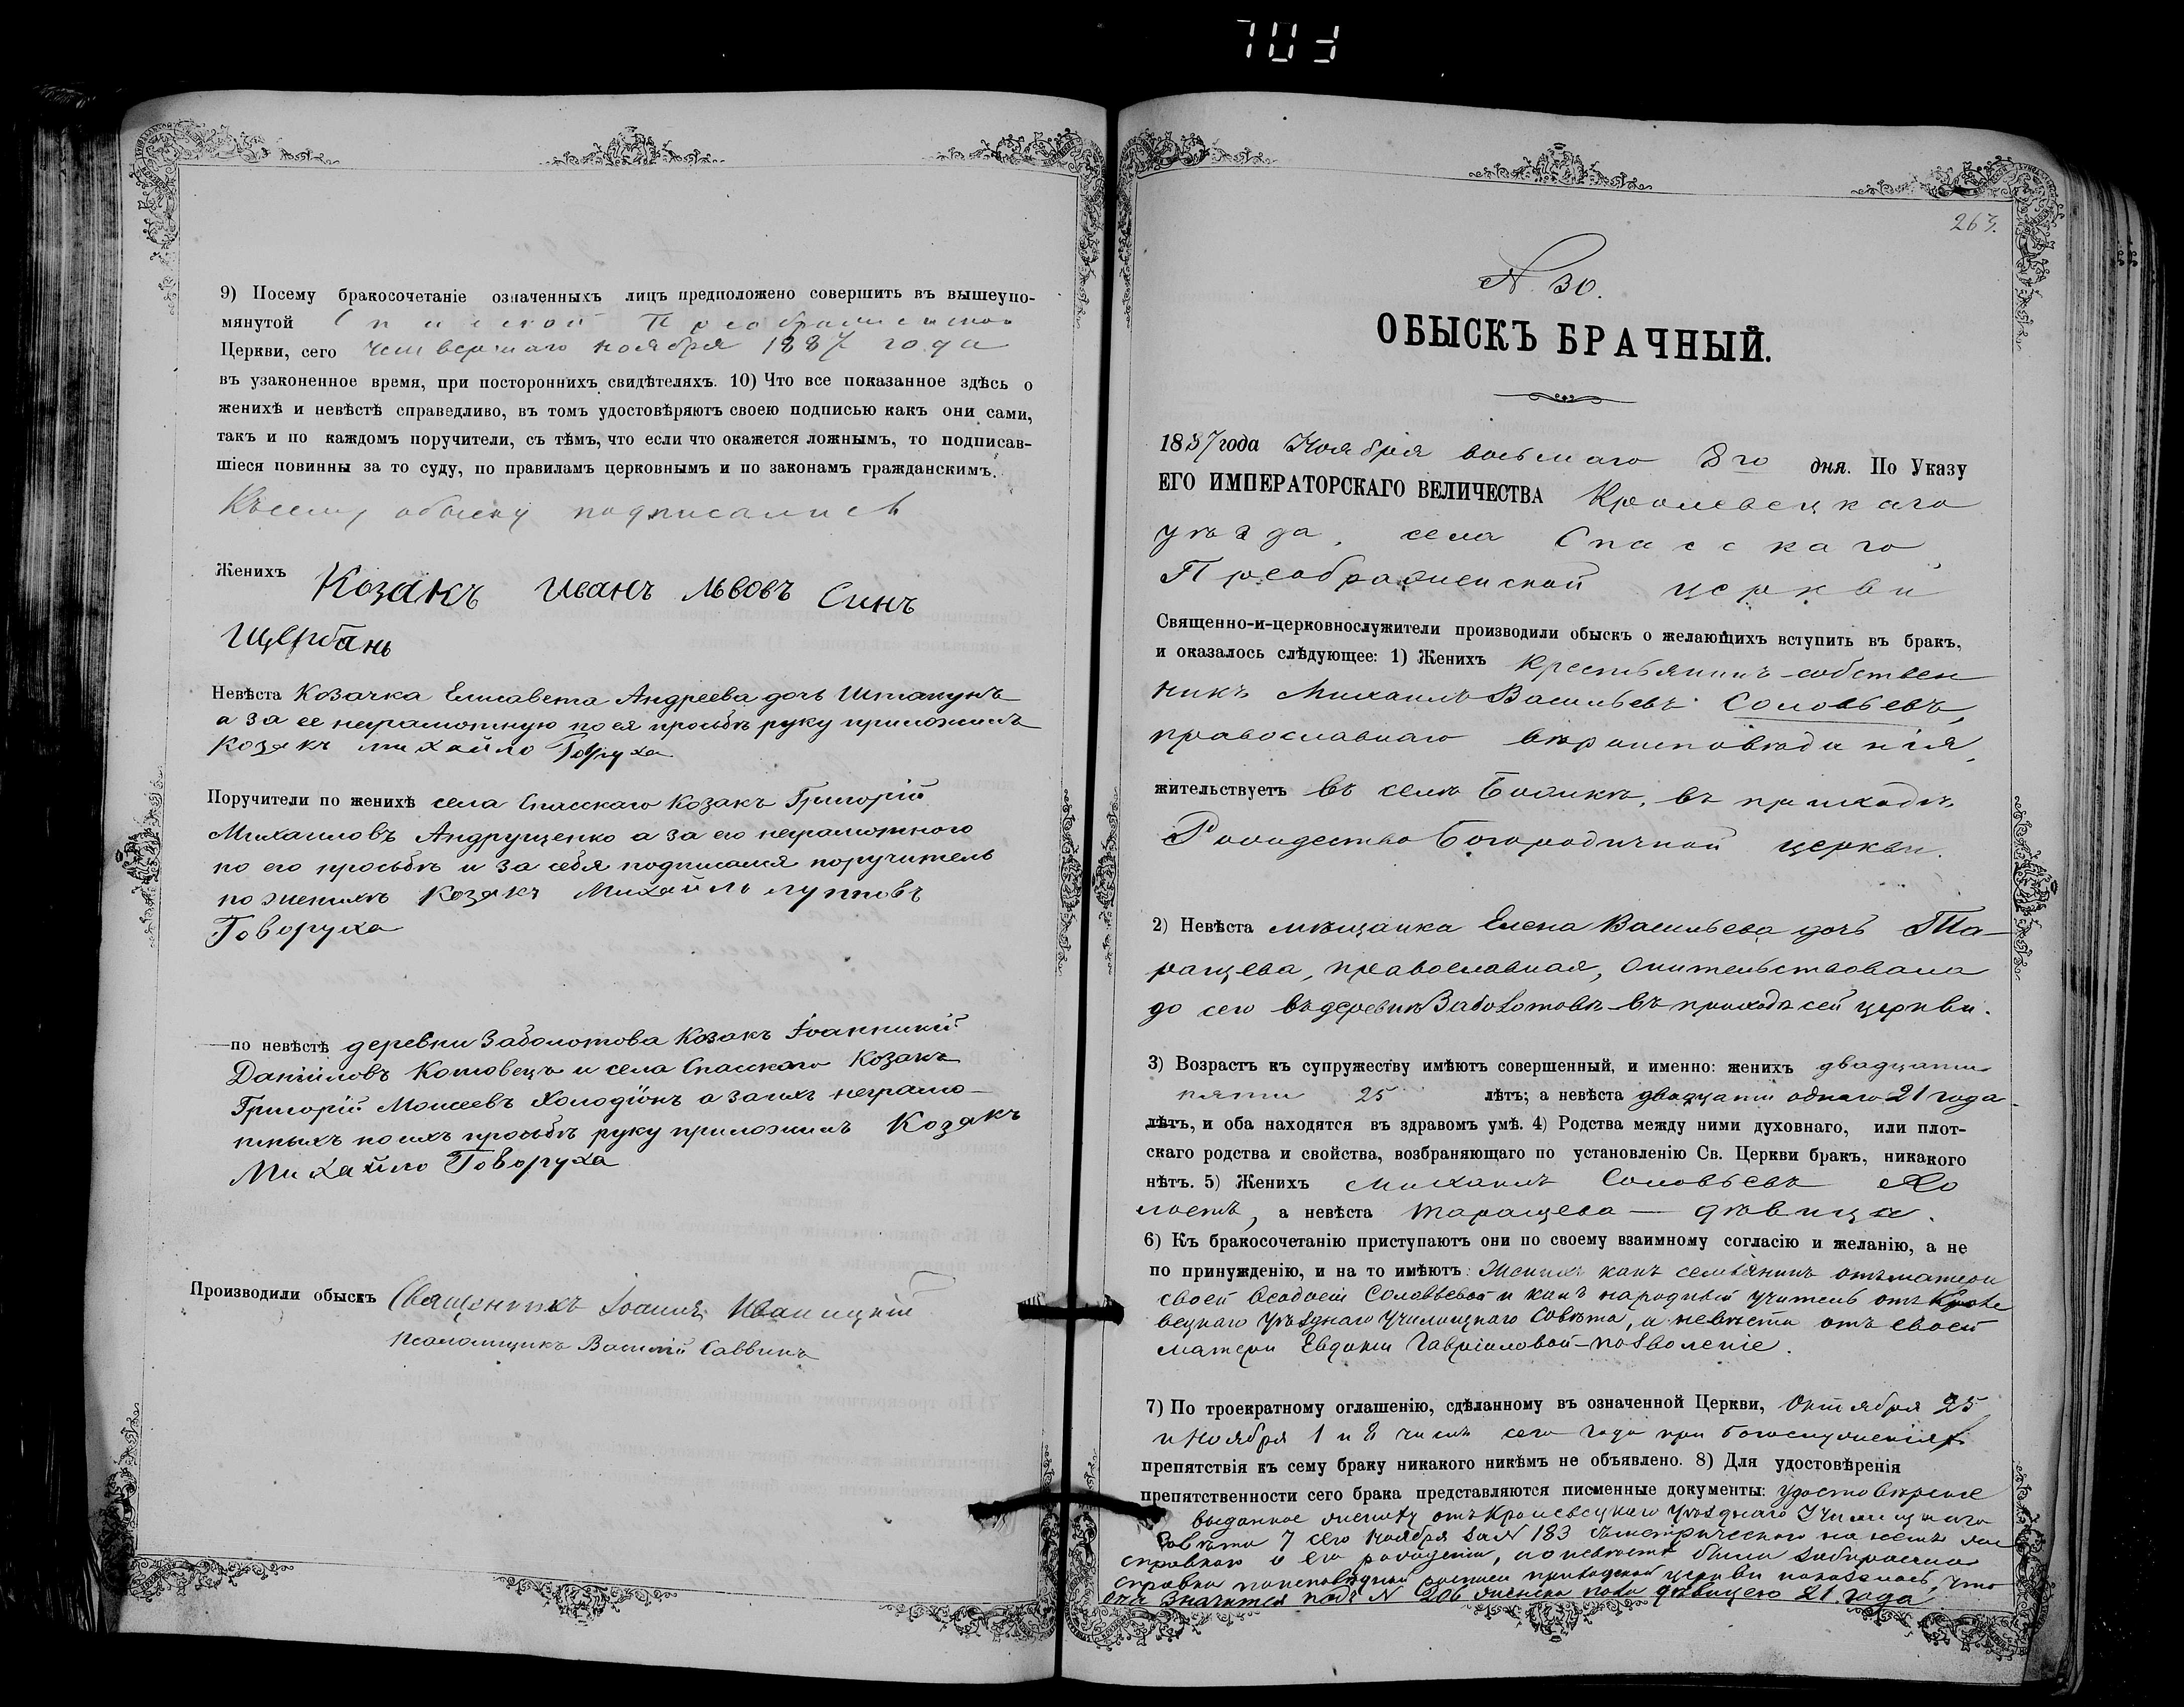 703
9) Посему бракосочетаніе означенныхъ лицъ предположено совершить въ вышеупо-
мянутой Спасской Преображенской
Церкви, сего четвертаго ноября 1887 года
въ узаконенное время, при постороннихъ свидѣтеляхъ. 10) Что все показанное здѣсь о
женихѣ и невѣстѣ справедливо, въ томъ удостовѣряютъ своею подписью какъ они сами,
такъ и по каждомъ поручители, съ тѣмъ, что если что окажется ложнымъ, то подписав-
шіеся повинны за то суду, по правиламъ церковнымъ и по законамъ гражданскимъ.
Къ сему обыску подписались
Женихъ Козакъ Иванъ Львовъ Синъ
Щербань
Невѣста Козачка Елисавета Андреева дочь Штапунъ
а за ее неграмотную по ея просьбѣ руку приложилъ
Козакъ михайло Говруха
Поручители по женихѣ села Спасскаго Козакъ Григорій
Михаиловъ Андрущенко а за его неграмотного
по его просьбѣ и за себя подписался поручитель
по женихѣ Козакъ Михайлъ лупповъ
Говоруха
—по невѣстѣ деревни Заболотова Козакъ Іоанникій
Даніиловъ Котовецъ и села Спасскаго Козакъ
Григорій Моисеевъ Холодіонъ а за ихъ неграмо-
тныхъ по ихъ просьбѣ руку приложилъ Козакъ
Михайло Говоруха
Производили обыскъ Священникъ Іоаннъ Иваницкій
Псаломщикъ Василій Саввинъ
263.
N. 30.
ОБЫСКЪ БРАЧНЫЙ.
1887 года Ноября восьмаго 8го дня. По Указу
ЕГО ИМПЕРАТОРСКАГО ВЕЛИЧЕСТВА Кролевецкаго
уѣзда, села Спасскаго
Преображенской церкви
Священно-и-церковнослужители производили обыскъ о желающихъ вступить въ бракъ,
и оказалось слѣдующее: 1) Женихъ Крестьянинъ-собствен
никъ Михаилъ Васильевъ Соловьевъ,
православнаго вѣроисповѣданія,
жительствуетъ въ селѣ въ приходѣ
Рождество Богородичной церкви.
2) Невѣста мѣщанка Елена Васильева дочь Та-
ращева, православная, жительствовала
до сего въ деревнѣ Заболотовѣ въ приходѣ сей церкви.
3) Возрастъ къ супружеству имѣютъ совершенный, и именно: женихъ двадцати
пяти 25 лѣтъ; а невѣста двадцати одного 21 года
лѣтъ, и оба находятся въ здравомъ умѣ. 4) Родства между ними духовнаго, или плот-
скаго родства и свойства, возбраняющаго по установленію Св. Церкви бракъ, никакого
нѣтъ. 5) Женихъ Михаилъ Соловьевъ Хо
лостъ, а невѣста Таращева — дѣвица.
6) Къ бракосочетанію приступаютъ они по своему взаимному согласію и желанію, а не
по принужденію, и на то имѣютъ: Женихъ какъ семьянинъ отъ матери
своей Ѳеодосіи Соловьевой и какъ народный учитель отъ Кроле
вецкаго Уѣзднаго Училищнаго Совѣта, а невѣста отъ своей
матери Евдокіи Гавріиловой-позволеніе.
7) По троекратному оглашенію, сдѣланному въ означенной Церкви, Октября 25
и Ноября 1 и 8 чиселъ сего года при богослуженіяхъ
препятствія къ сему браку никакого никѣмъ не объявлено. 8) Для удостовѣренія
препятственности сего брака представляются писменные документы: удостовѣреніе
выданное жениху отъ Кролевецкаго Уѣзднаго Училищнаго
Совѣта 7 сего Ноября за N 183 съ метрическою на немъ же
справкою о его рожденіи, а о невѣстѣ была забираема
справка по исповѣдной росписи приходской церкви показалось, что
она значится подъ N 206 дѣвицею 21 года